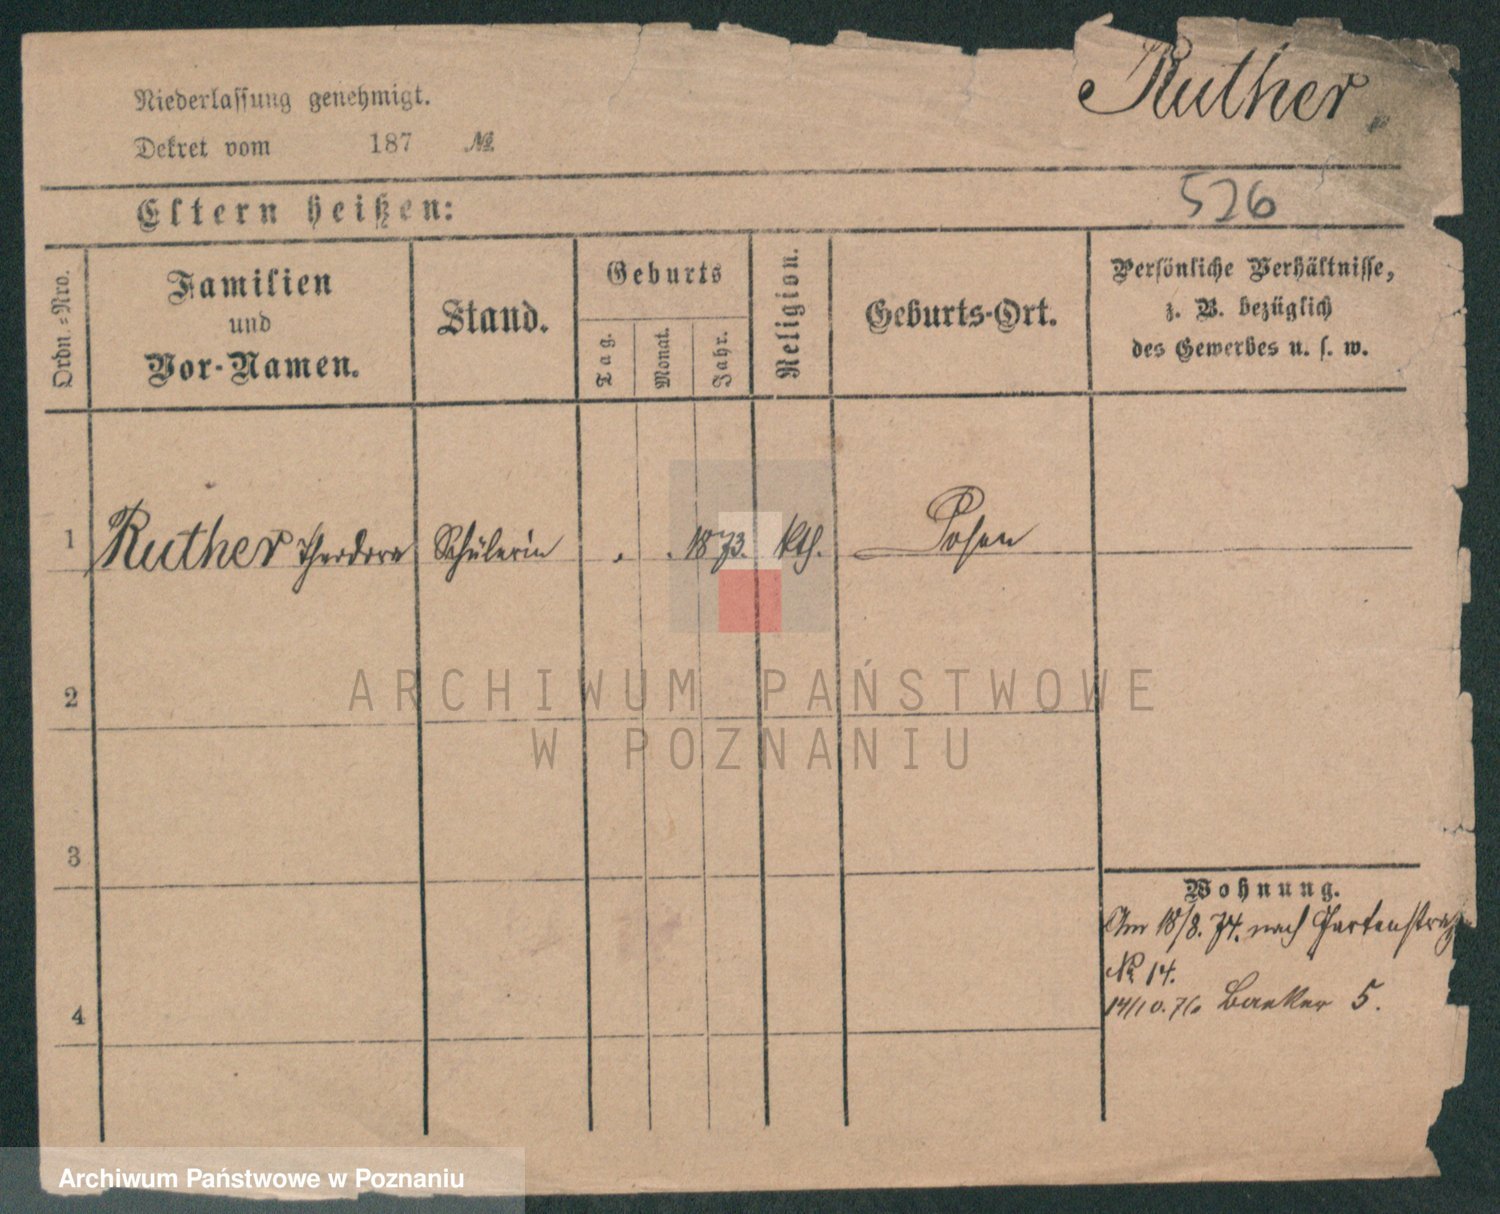 Ruther
Niederlassung genehmigt.
Dekret vom 187 №
526
Eltern heißen:
Ordn.-Nro.
Familien
und
Vor-Namen.
Stand.
Geburts
Tag.
Monat.
Jahr.
Religion.
Geburts-Ort.
Persönliche Verhältnisse,
z. B. bezüglich
des Gewerbes u. s. w.
1 Ruther Theodora Schülerin . . 1873. kth. Posen
2
ARCHIWUM PAŃSTWOWE
W POZNANIU
3
Wohnung.
Am 18/8. 74. nach Gartenstraße
№ 14.
4
14/10. 76 Baeker 5.
Archiwum Państwowe w Poznaniu